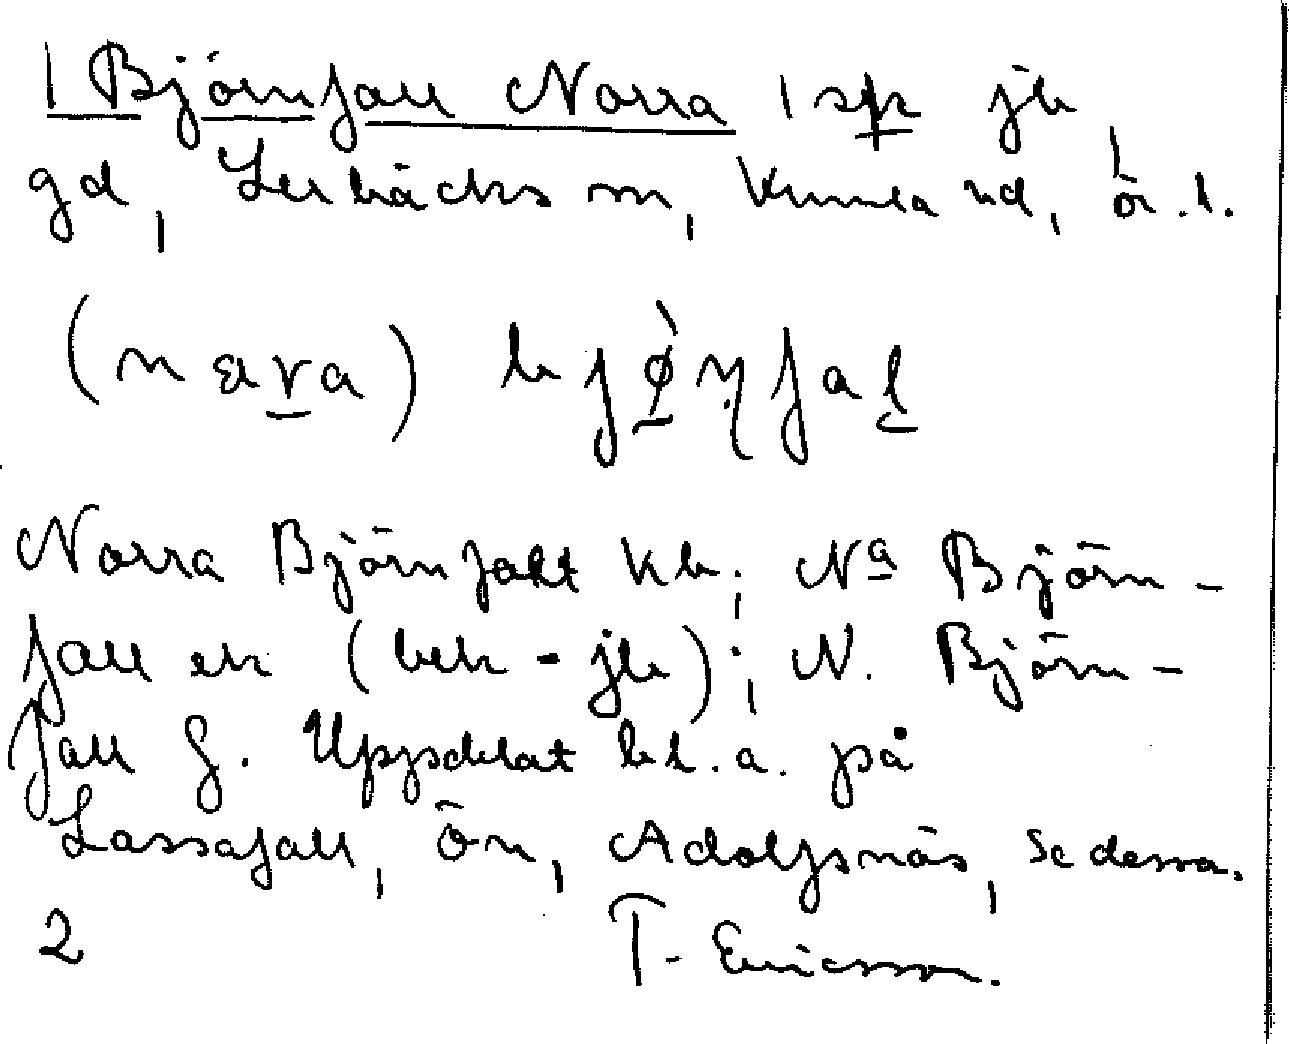 1 Björnfall Norra 1 sp jb
gd, Lerbäcks sn, Kumla hd, ör. l.
(næra) bjø̀ṇfal
Norra Björnfallt kb; Nª Björn-
fall ek (bek-jb); N. Björn-
fall G. Uppdelat bl. a. på
Lassafall, Ön, Adolfsnäs, se dessa.
2 T. Ericsson.